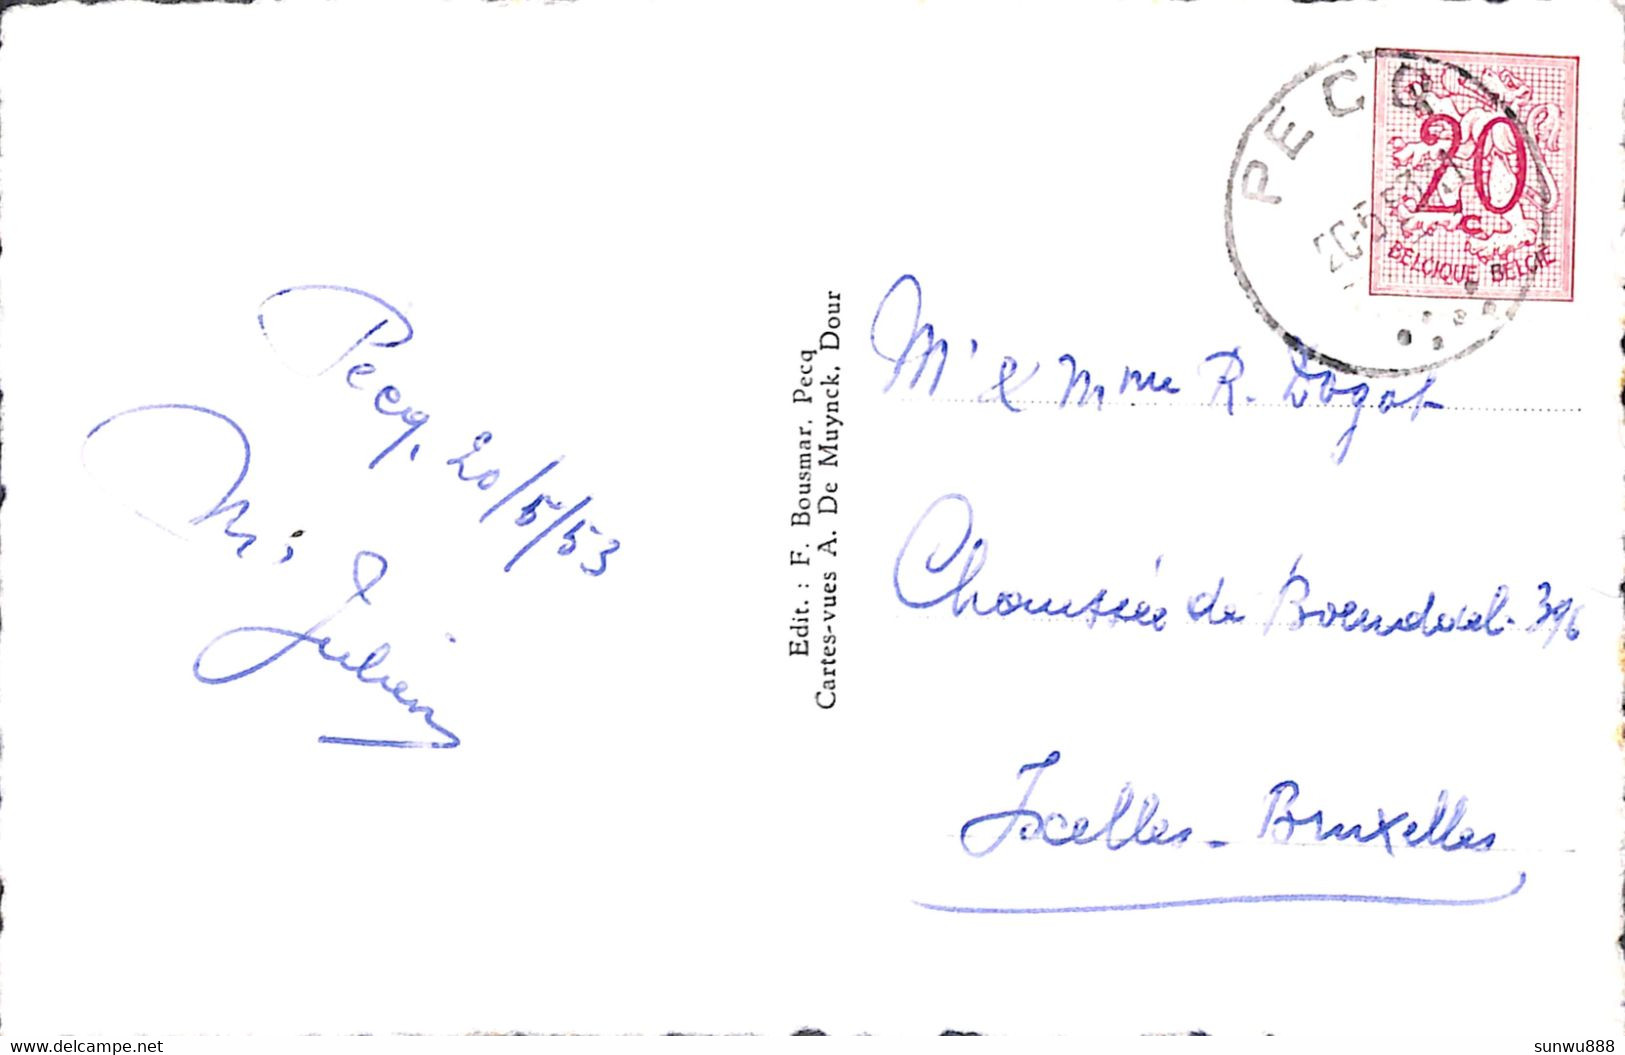 Pecq, 20/5/53
Julien
Edit. : F. Bousmar, Pecq
Cartes-vues A. De Muynck, Dour
PECQ
20-5-53
20
C
BELGIQUE BELGIË
Mr & Mme R. Dogot
Chaussée de Boendael 396
Ixelles - Bruxelles
www.delcampe.net
sunwu888